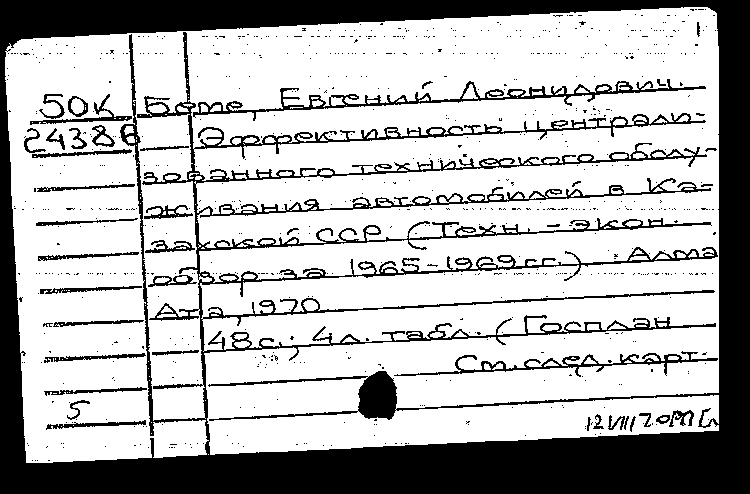 50К Беме, Евгений Леонидович.
24386 Эффективность централи-
зованного технического обслу-
живания автомобилей в Ка-
захской ССР. (Техн. - экон.
обзор за 1965-1969 гг.) Алма
Ата, 1970
48 с.; 4 л. табл. (Госплан
См. след. карт.
5
12 VIII 70